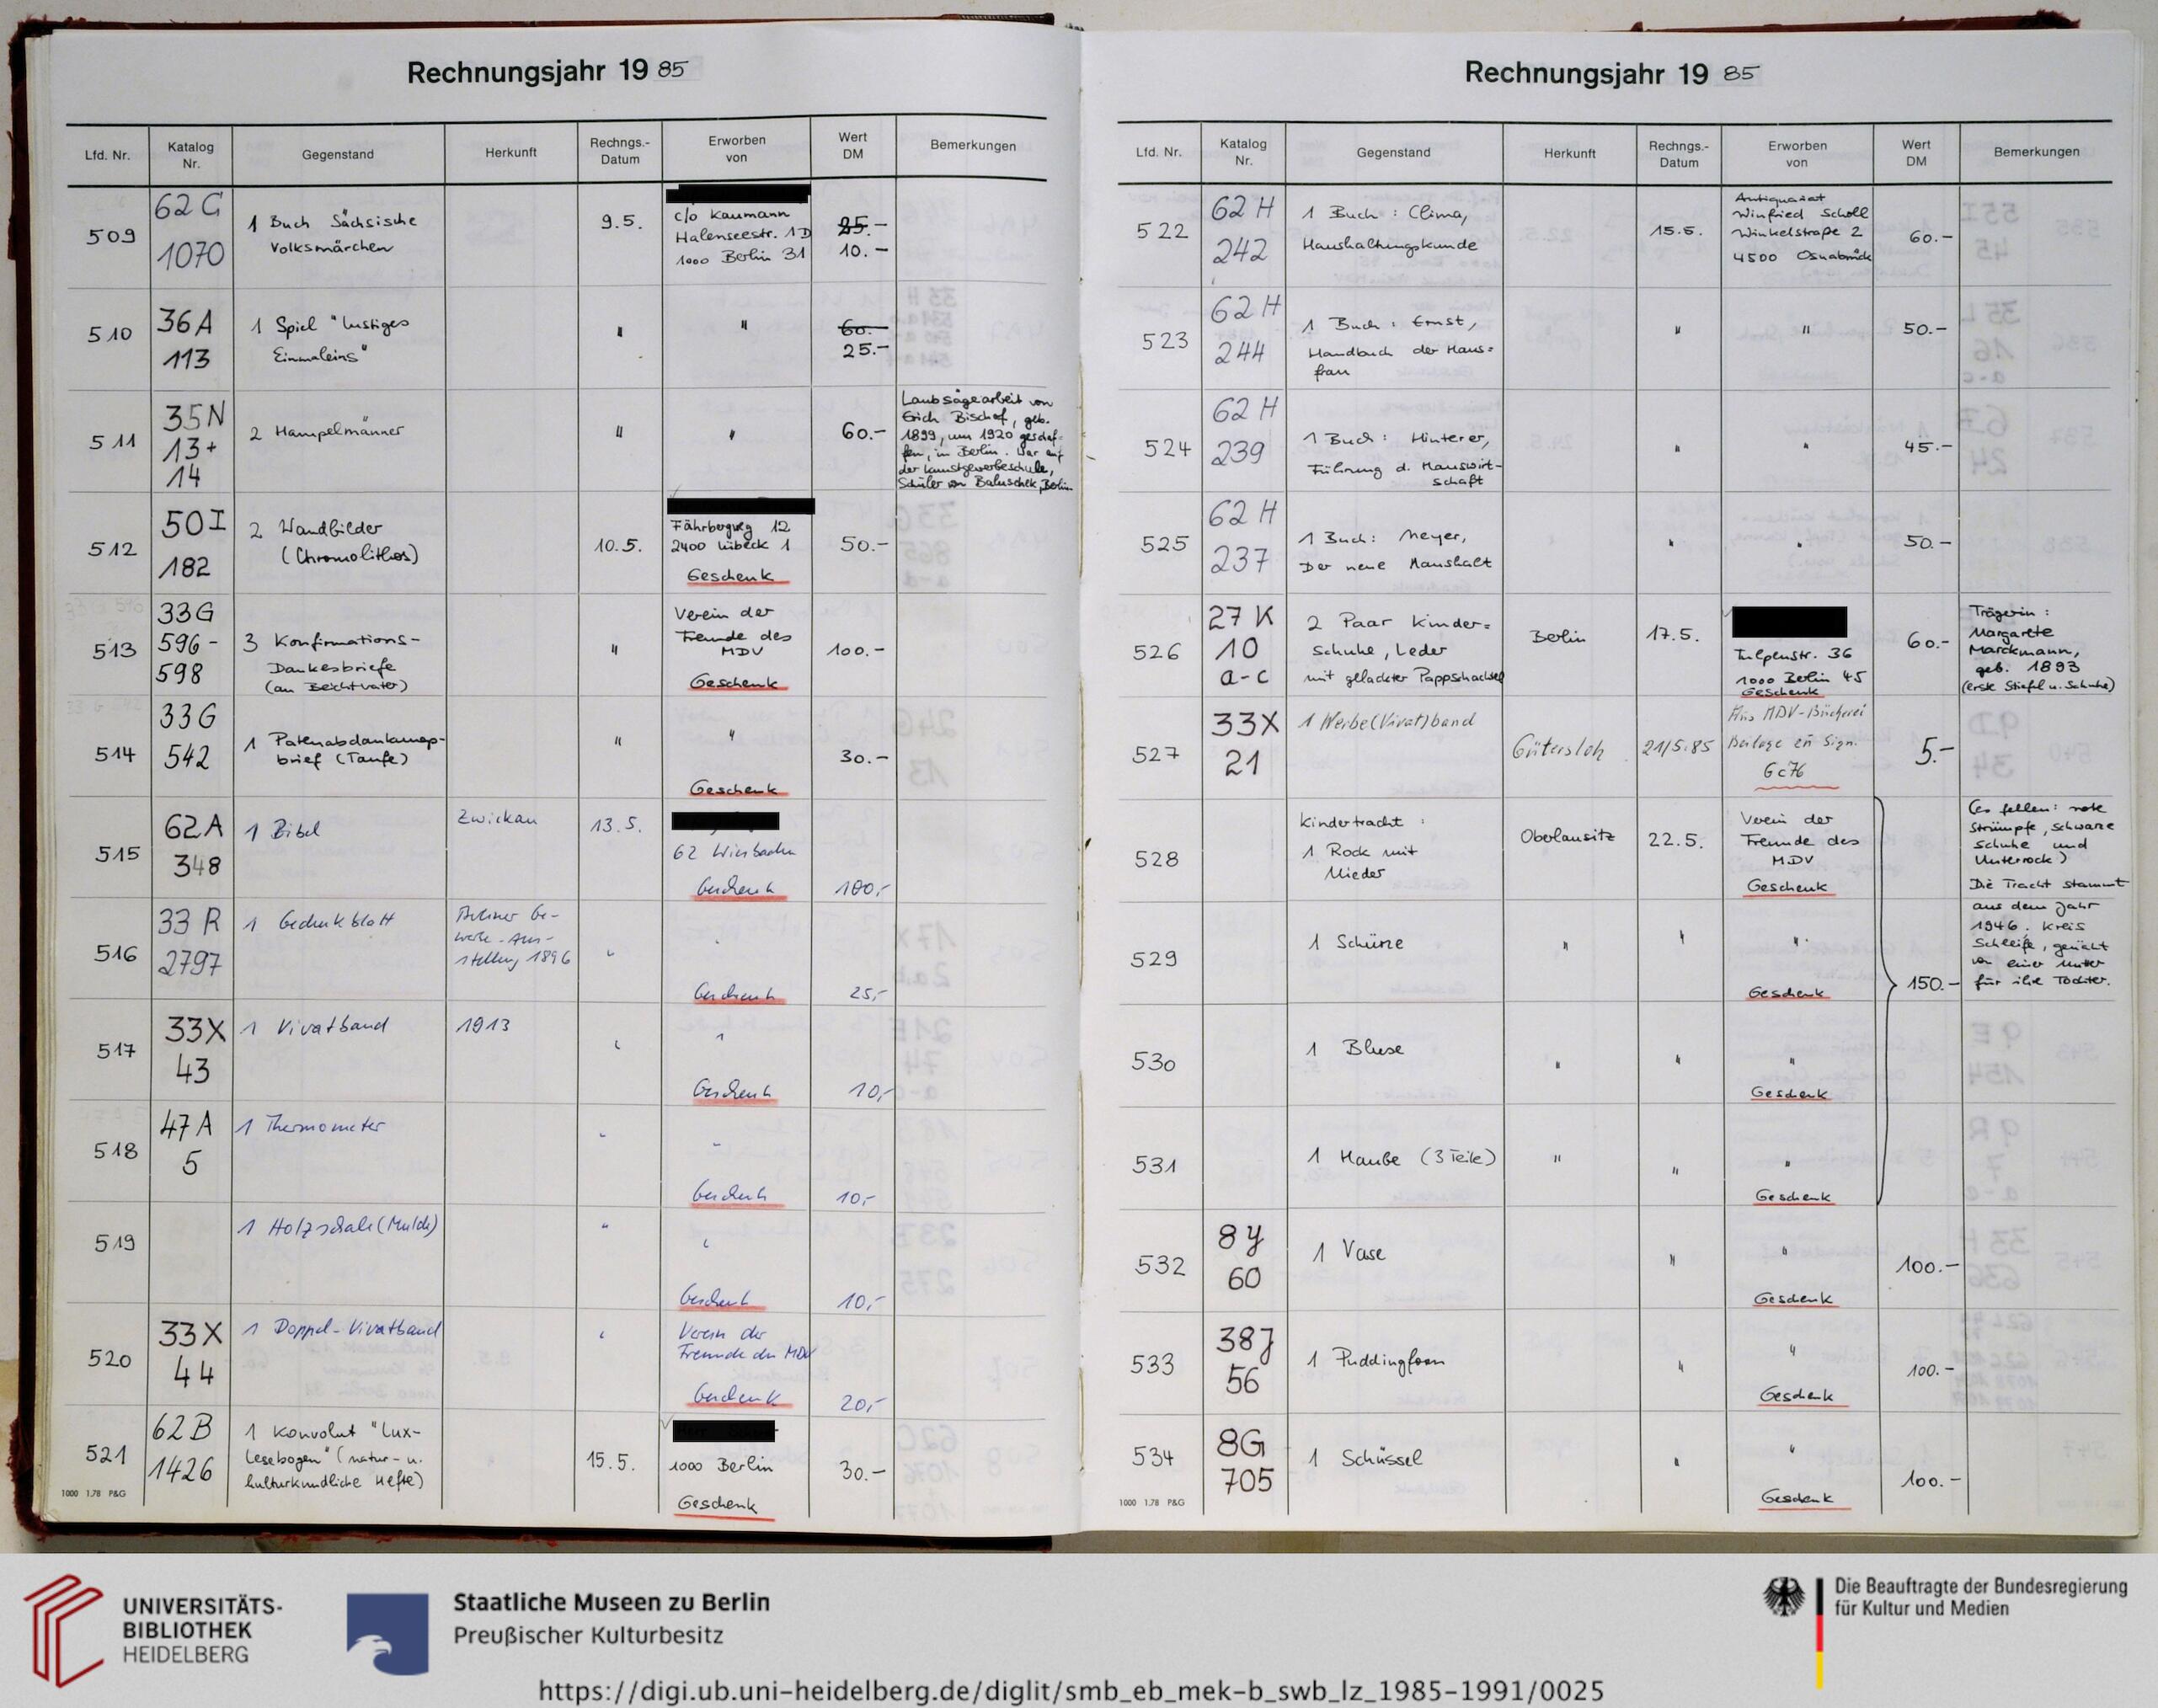 Rechnungsjahr 19 85
Lfd. Nr.
Katalog Nr.
Gegenstand
Herkunft
Rechngs.-Datum
Erworben von
Wert DM
Bemerkungen
509
62 C
1070
1 Buch Sächsische
Volksmärchen
9.5.
c/o Kaumann
Halenseestr. 1D
1000 Berlin 31
25.-
10.-
510
36A
113
1 Spiel "Lustiges
Einmaleins"
"
"
60.-
25.-
511
35N
13+
14
2 Hampelmänner
"
"
60.-
Laubsägearbeit von
Erich Bischof, geb.
1899, um 1920 geschaf-
fen, in Berlin. War auf
der Kunstgewerbeschule,
Schüler von Baluschek, Berlin
512
50I
182
2 Wandbilder
(Chromolithos)
10.5.
Fährbergweg 12
2400 Lübeck 1
Geschenk
50.-
513
33G
596-
598
3 Konfirmations-
Dankesbriefe
(an Beichtvater)
"
Verein der
Freunde des
MDV
Geschenk
100.-
514
33G
542
1 Patenabdankungs-
brief (Taufe)
"
"
Geschenk
30.-
515
62A
348
1 Bibel
Zwickau
13.5.
62 Wiesbaden
Geschenk
100,-
516
33 R
2797
1 Gedenkblatt
Berliner Ge-
werbe-Aus-
stellung 1896
"
"
Geschenk
25,-
517
33X
43
1 Vivatband
1913
"
"
Geschenk
10,-
518
47A
5
1 Thermometer
"
"
Geschenk
10,-
519
1 Holzschale (Mulde)
"
"
Geschenk
10,-
520
33X
44
1 Doppel-Vivatband
"
Verein der
Freunde des MDV
Geschenk
20,-
521
62B
1426
1 Konvolut "Lux-
Lesebogen" (natur- u.
kulturkundliche Hefte)
15.5.
1000 Berlin
Geschenk
30.-
1000 1.78 P&G
Rechnungsjahr 19 85
Lfd. Nr.
Katalog Nr.
Gegenstand
Herkunft
Rechngs.-Datum
Erworben von
Wert DM
Bemerkungen
522
62 H
242
1 Buch: Clima,
Haushaltungskunde
15.5.
Antiquariat
Winfried Scholl
Winkelstraße 2
4500 Osnabrück
60.-
523
62 H
244
1 Buch: Ernst,
Handbuch der Haus=
frau
"
"
50.-
524
62 H
239
1 Buch: Hinterer,
Führung d. Hauswirt-
schaft
"
"
45.-
525
62 H
237
1 Buch: Meyer,
Der neue Haushalt
"
"
50.-
526
27 K
10
a-c
2 Paar Kinder=
schuhe, Leder
mit gelackter Pappschachtel
Berlin
17.5.
Tulpenstr. 36
1000 Berlin 45
Geschenk
60.-
Trägerin:
Margarete
Marckmann,
geb. 1893
(erste Stiefel u. Schuhe)
527
33X
21
1 Werbe(Vivat)band
Gütersloh
21/5.85
Aus MDV-Bücherei
Beilage zu Sign.
Gc76
5.-
528
Kindertracht:
1 Rock mit
Mieder
Oberlausitz
22.5.
Verein der
Freunde des
MDV
Geschenk
(es fehlen: rote
Strümpfe, schwarze
Schuhe und
Unterrock)
Die Tracht stammt
aus dem Jahr
1946. Kreis
Schleife, genäht
von einer Mutter
für ihre Tochter.
529
1 Schürze
"
"
"
Geschenk
150.-
530
1 Bluse
"
"
"
Geschenk
531
1 Haube (3 Teile)
"
"
"
Geschenk
532
8Y
60
1 Vase
"
"
Geschenk
100.-
533
38J
56
1 Puddingform
"
"
Geschenk
100.-
534
8G
705
1 Schüssel
"
"
Geschenk
100.-
1000 1.78 P&G
UNIVERSITÄTS-
BIBLIOTHEK
HEIDELBERG
Staatliche Museen zu Berlin
Preußischer Kulturbesitz
Die Beauftragte der Bundesregierung
für Kultur und Medien
https://digi.ub.uni-heidelberg.de/diglit/smb_eb_mek-b_swb_lz_1985-1991/0025